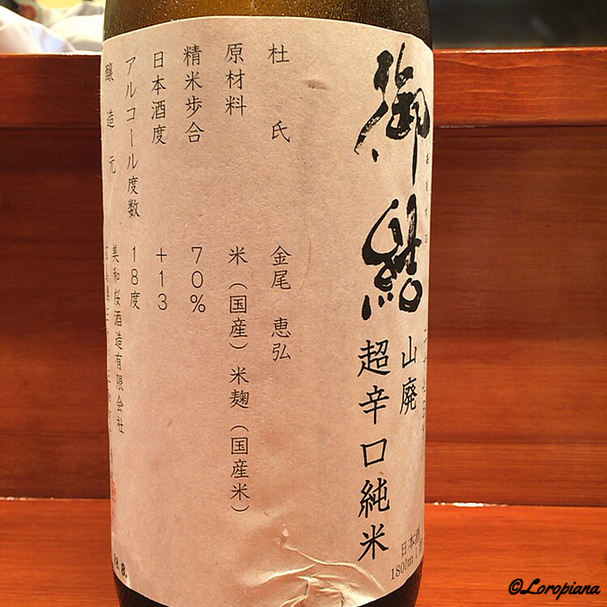 御結
おむすび
山廃
超辛口純米
日本酒
1800ml
杜氏 金尾 恵弘
原材料 米（国産）米麹（国産米）
精米歩合 70%
日本酒度 +13
アルコール度数 18度
醸造元 美和桜酒造有限会社
©Loropiana